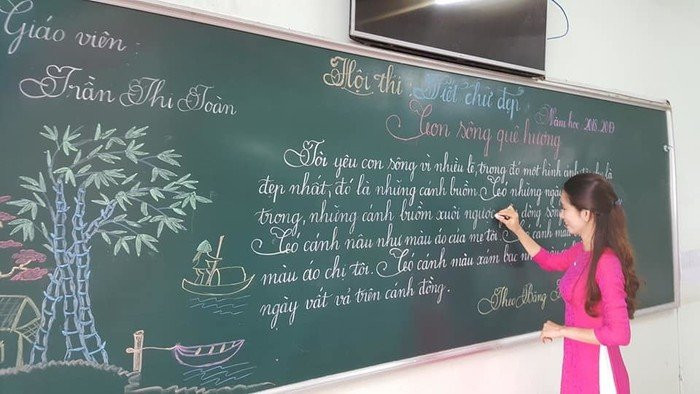 Giáo viên:
Trần Thị Toàn
Hội thi: Viết chữ đẹp
Năm học 2018-2019
Con sông quê hương
Tôi yêu con sông vì nhiều lẽ, trong đó một hình ảnh là
đẹp nhất, đó là những cánh buồm. Có những ngày
trong, những cánh buồm xuôi ngược dòng sông
Có cánh nâu như màu áo của mẹ tôi. Có cánh màu
màu áo chị tôi. Có cánh màu xám bạc như màu áo
ngày vất vả trên cánh đồng.
Theo Băng